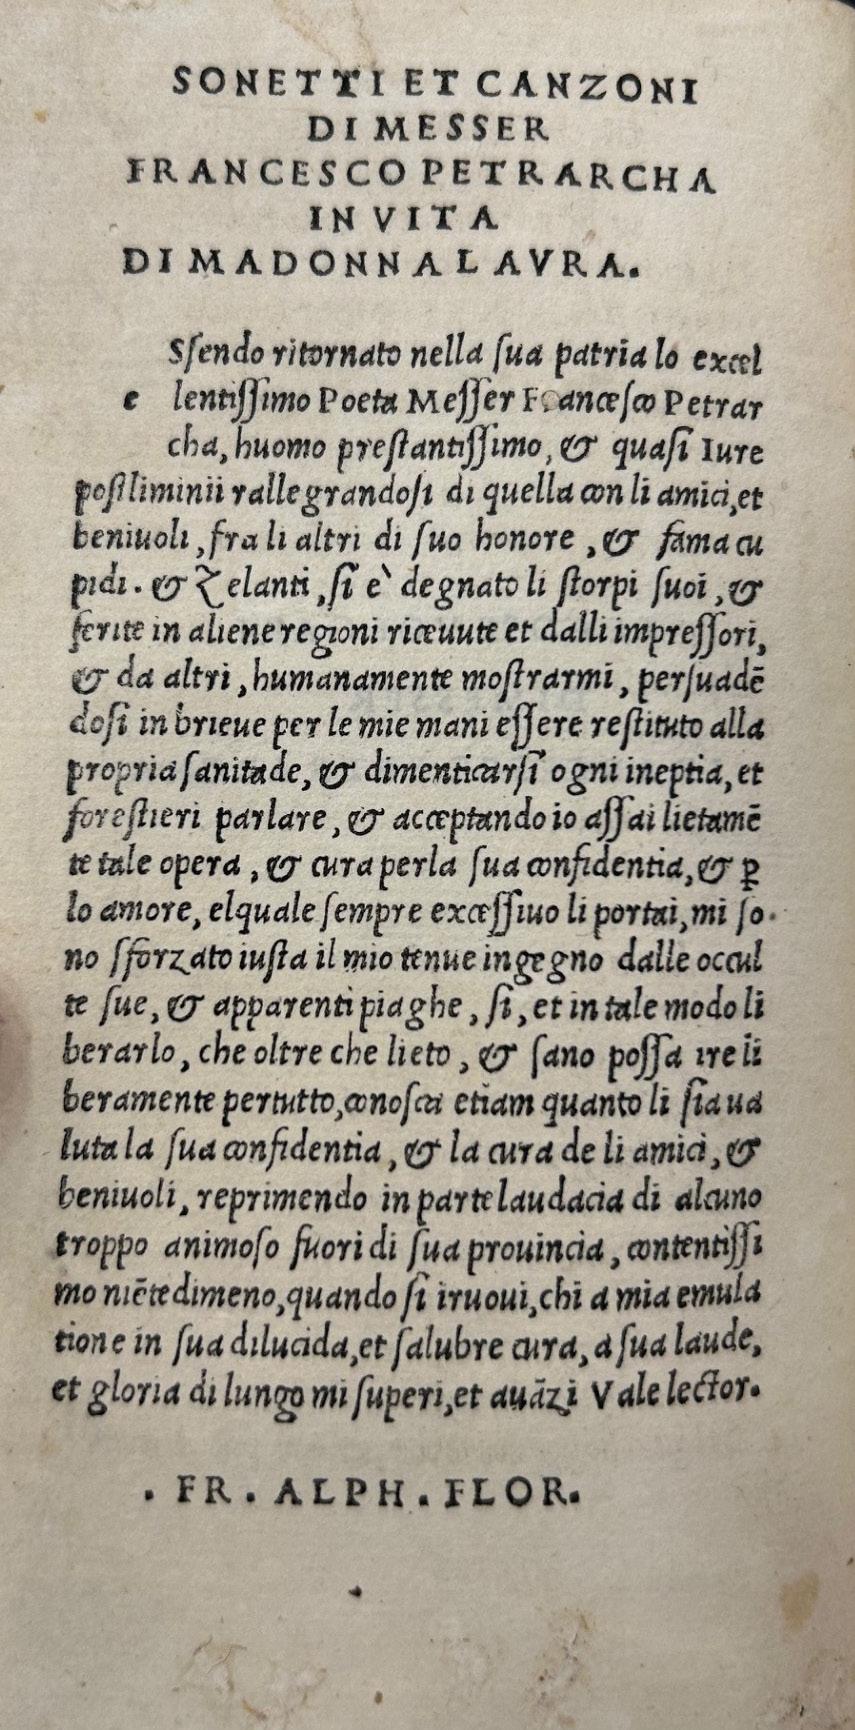 SONETTI ET CANZONI
DI MESSER
FRANCESCO PETRARCHA
IN VITA
DI MADONNA LAVRA.
Sſendo ritornato nella ſua patria lo excel
e lentiſſimo Poeta Meſſer Franceſco Petrar
cha, huomo preſtantiſſimo, & quaſi Iure
poſtliminii rallegrandoſi di quella con li amici, et
beniuoli, fra li altri di ſuo honore, & fama cu
pidi. & Zelanti, ſi è degnato li ſtorpi ſuoi, &
ferite in aliene regioni riceuute et dalli impreſſori,
& da altri, humanamente moſtrarmi, perſuadē
doſi in brieue per le mie mani eſſere reſtituto alla
propria ſanitade, & dimenticarſi ogni ineptia, et
foreſtieri parlare, & acceptando io aſſai lietamē
te tale opera, & cura perla ſua confidentia, & ꝑ
lo amore, elquale ſempre exceſſiuo li portai, mi ſo
no ſforzato iuſta il mio tenue ingegno dalle occul
te ſue, & apparenti piaghe, ſi, et in tale modo li
berarlo, che oltre che lieto, & ſano poſſa ire li
beramente pertutto, conoſca etiam quanto li ſia ua
luta la ſua confidentia, & la cura de li amici, &
beniuoli, reprimendo in parte laudacia di alcuno
troppo animoſo fuori di ſua prouincia, contentiſſi
mo niētedimeno, quando ſi iruoui, chi a mia emula
tione in ſua dilucida, et ſalubre cura, a ſua laude,
et gloria di lungo mi ſuperi, et auāzi Vale lector.
. FR. ALPH. FLOR.